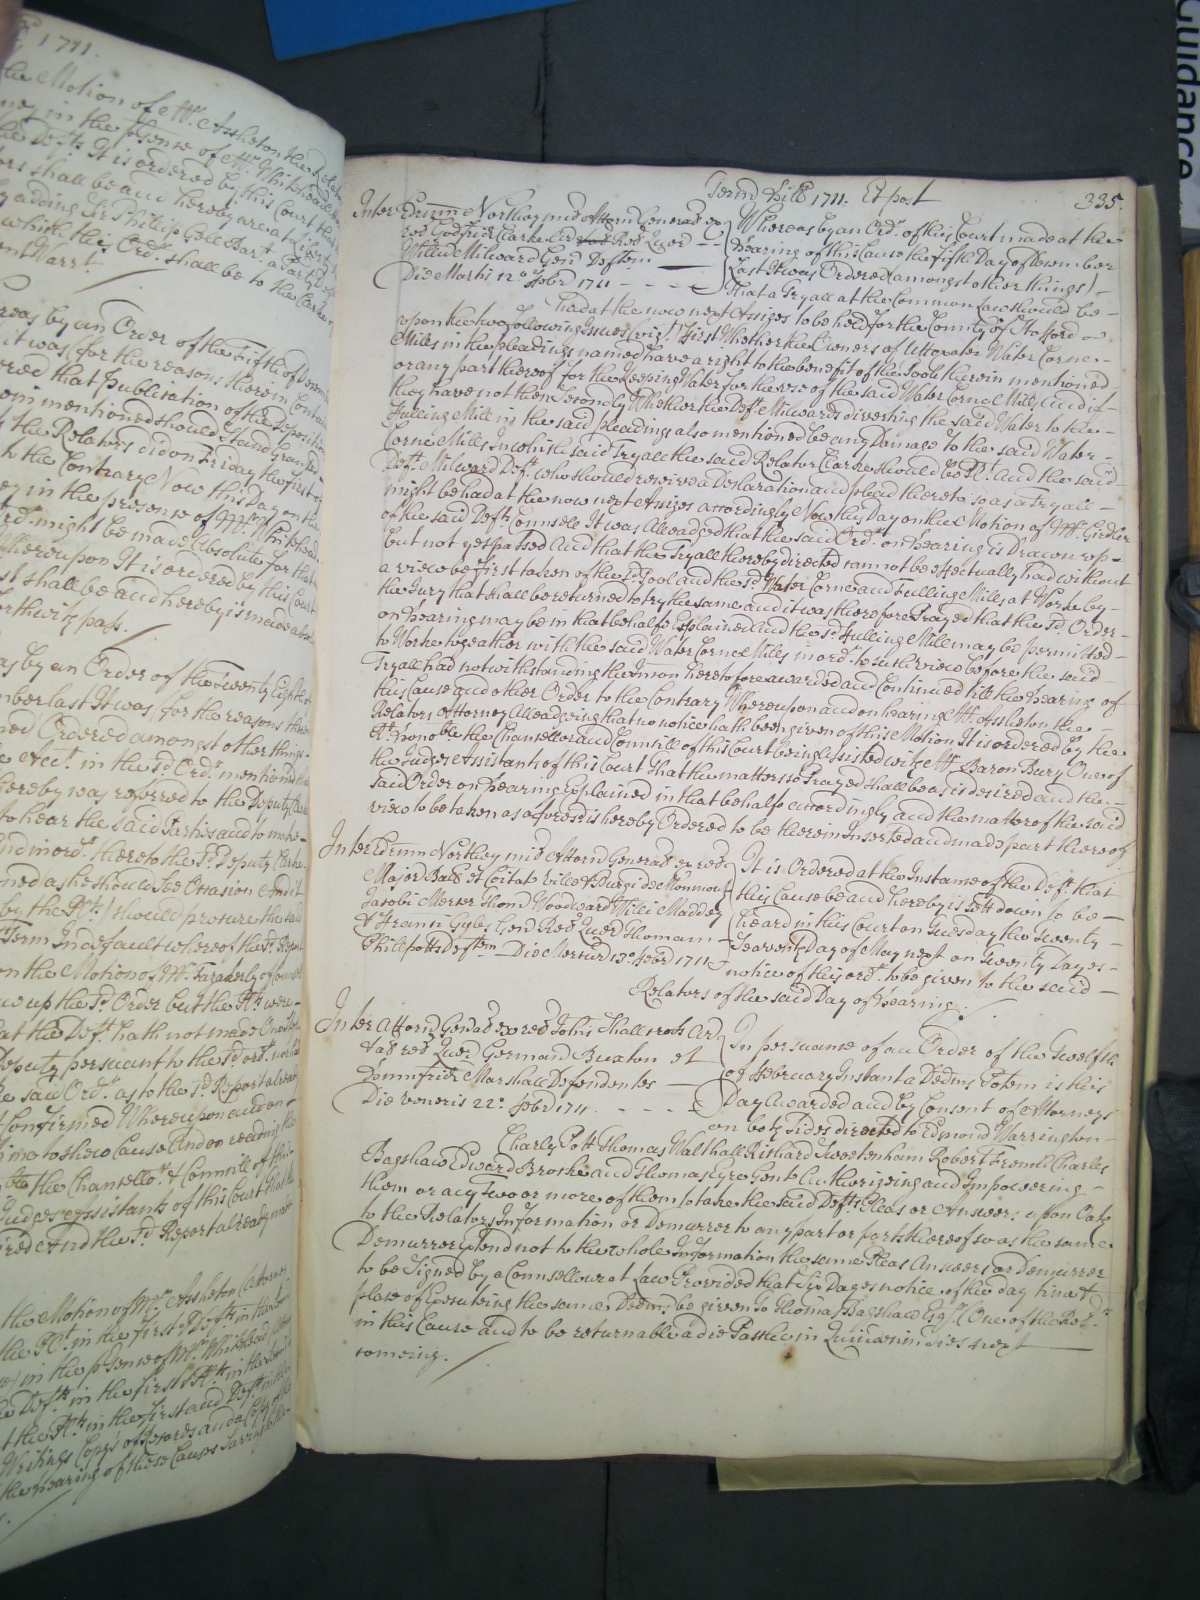 1711.
the Motion of Mr. Assheton the Relators
in the p'sence of Mr. Whitehead
the Defts. It is ordered by this Court that
shall be and hereby are at Liberty
by adding Sr. Phillip Bart. a Party
which this Ordr. shall be to the Clarke
Warrt.
by an Order of the Fifth of
it was (for the reasons therein
that Publication of the Depositions
mentioned should stand Granted
the Relators did on Friday the first
to the Contrary Now this Day on the
in the presence of Mr. Whitehead
might be made Absolute for that
Whereupon It is ordered by this Court
shall be and hereby is made
forthwith pass.
by an Order of the Twenty Eighth
last It was for the reasons
Ordered amongst other things
Acct. in the sd. Ordr. mentioned
hereby was referred to the Deputy
to hear the said Parties and to make
thereto the sd. Deputy Clarke
as he should see Occasion And it
by the Plts.) should procure the said
Term In default whereof the sd. Report
on the Motion of Mr.
up the sd. Order but the Plts. were
that the Deft. hath not made
Deputy persuant to the sd. ordr.
said Ordr. as to the sd. Report already
Confirmed Whereupon and on
to shew Cause And on reading the
the Chancellor. & Councill of this
Judges assistants of this Court that
And the sd. Report already
the Motion of Mr. Assheton Attorney
the Plt. in the first & Deft. in the
in the p'sence of Mr. Whitehead
Defts. in the first & Plts. in the
the Plts. in the first and Defts. in the
Writings Copys of Records and
the hearing of these Causes Saving
Termo Hill: 1711. Et post
335.
Inter Edrum Northey mil Attorn General ex
rel Godfrid Clarke Ar Rel Quer
Willm Milward Gen Deftem
Die Martis 12o Febr 1711
Whereas by an Ordr. of this Court made at the
hearing of this Cause the fifth Day of December
Last It was Ordered (amongst other things)
That a Tryall at the Common Law should be
had at the now next Assizes to be held for the County of Stafford
upon the two following Issues (viz.) First Whether the Owners of Uttoxater Water Corne
Mills in the pleadings named have a right to the benefit of the Pools therein mentioned
or any part thereof for the keeping Water for the use of the said Water Corne Mills and if
they have not then Secondly Whether the Deft. Milwards diverting the said Water to the
Fulling Mill in the said pleadings also mentioned be any Damage to the said Water
Corne Mills In which said Tryall the said Relator Clarke should be Plt. And the said
Deft. Milward Deft. who should receive a Declaration and plead thereto so as a Tryall
might be had at the now next Assizes accordingly Now this Day on the Motion of Mr. Girdler
of the said Defts. Councell It was Alleadged that the said Ordr. on hearing is Drawn up
but not yet passed And that the Tryall thereby directed cannot be effectually had without
a view be first taken of the sd. Pool and the sd. Water Corne and Fulling Mills at Worke by
the Jury that shall be returned to try the same and it was therefore Prayed that the sd. Order
on hearing may be in that behalfe Explained And the sd. Fulling Mill may be permitted
to Worke together with the said Water Corne Mills in ordr. to such view before the said
Tryall had notwithstanding the Injunon heretofore awarded and Continued till the hearing of
this Cause and other Order to the Contrary Whereupon and on hearing Mr. Assheton the
Relators Attorney Alleadgeing that no notice hath been given of this Motion It is ordered by the
Rt. honoble. the Chancellor and Councill of this Court being Assisted with Mr. Baron Bury One of
the Judges Assistants of this Court That the matter so Prayed shall be as is desired and the
said Order on hearing Explained in that behalfe accordingly and the matter of the said
view to be taken as aforesd. is hereby Ordered to be therein Inserted and made part thereof
Inter Edrum Northey mil Attorn General ex rel
Major Ball et Coitat Ville & Burgi de Monmouth
Jacobi Mercer Thom Woodward Willi Maddey
& Franci Gyles Gen Rel Quer Thomam
Philpotts Deftem Die Mercur 13o Febr 1711
It is Ordered at the Instance of the Deft. that
this Cause be and hereby is sett down to be
heard in this Court on Tuesday the Twenty
Seaventh Day of May next on Twenty Dayes
notice of this ordr. to be given to the said
Relators of the said Day of hearing.
Inter Attorn General ex rel Johis Shallcross Ar
& al rel Quer Germanu Buxton et
Marshall Defendentes
Die Veneris 22o Febr 1711
In persuance of an Order of the Twelfth
of February Instant a Dedms. Potem is this
Day Awarded and by Consent of Attorneys
on both sides directed to Edmond Warrington
Charles Pott Thomas Walthall Richard Swetenham Robert French Charles
Bagshaw Edward Brocke and Thomas Eyre Gents. Authorizeing and Impowering
them or any Two or more of them to take the said Defts. Pleas or Answers upon Oath
to the Relators Information or Demurrer to any part or parts thereof so as the same
Demurrer extend not to the whole Information the same Pleas Answers or Demurrer
to be Signed by a Counsellour at Law Provided that Six Dayes notice of the day time &
place of Executeing the same Dedms. be given to Thomas Bagshaw Esqr. One of the Relrs.
in this Cause and to be returnable a die Pasche in Quindecim dies next
comeing.
Guidance